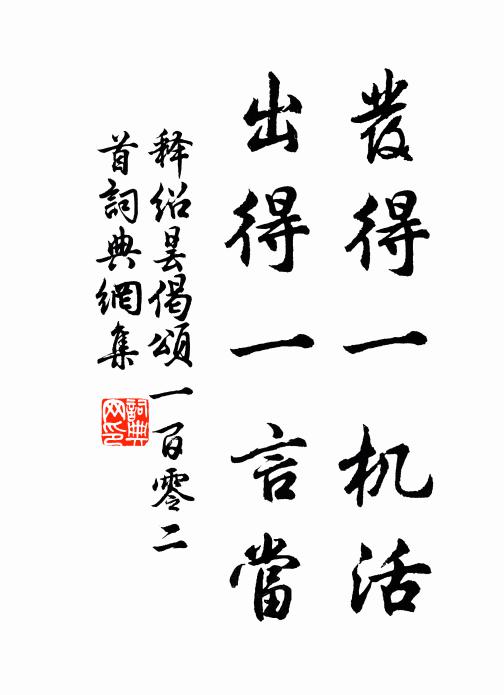 發得一机活
出得一言當
释绍昙偈頌一百零二
首詞典網集
詞典
网印